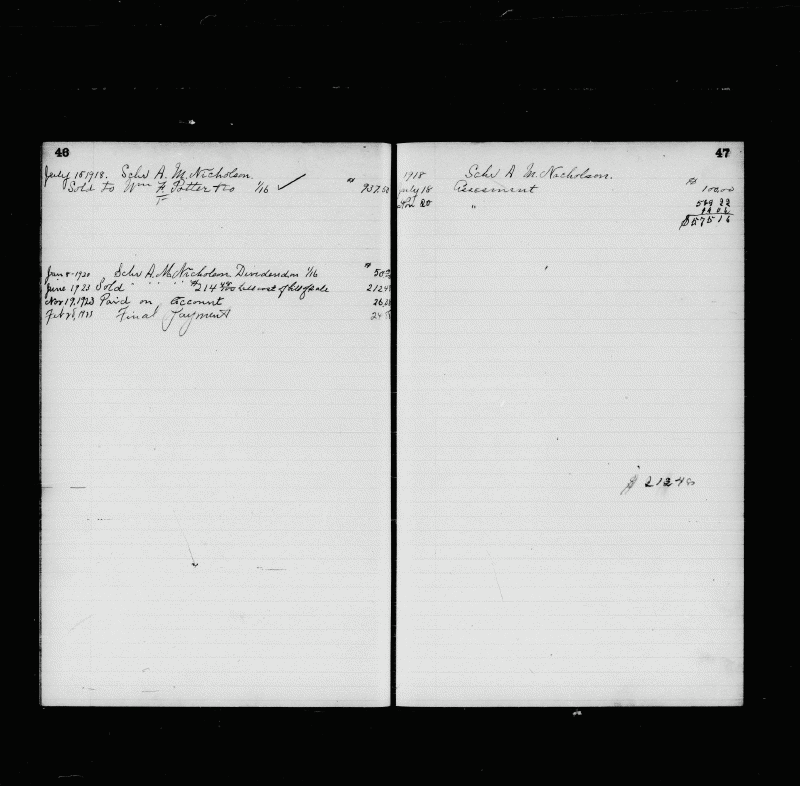 46
July 15 1918. Schr A. M. Nicholson.
Sold to Wm F. Potter & Co 1/16 ✓ $ 937.50
Jan 8-1920 Schr A. M. Nicholson Dividend on 1/16 $ 50
June 1923 Sold " " " " $214 less cost of bill of sale 212 48
Nov 19, 1923 Paid on account 26
Final Payment 24
47
1918 Schr A. M. Nicholson.
July 18 Assesment $ 100,00
20 "
$ 575 16
$ 212 48